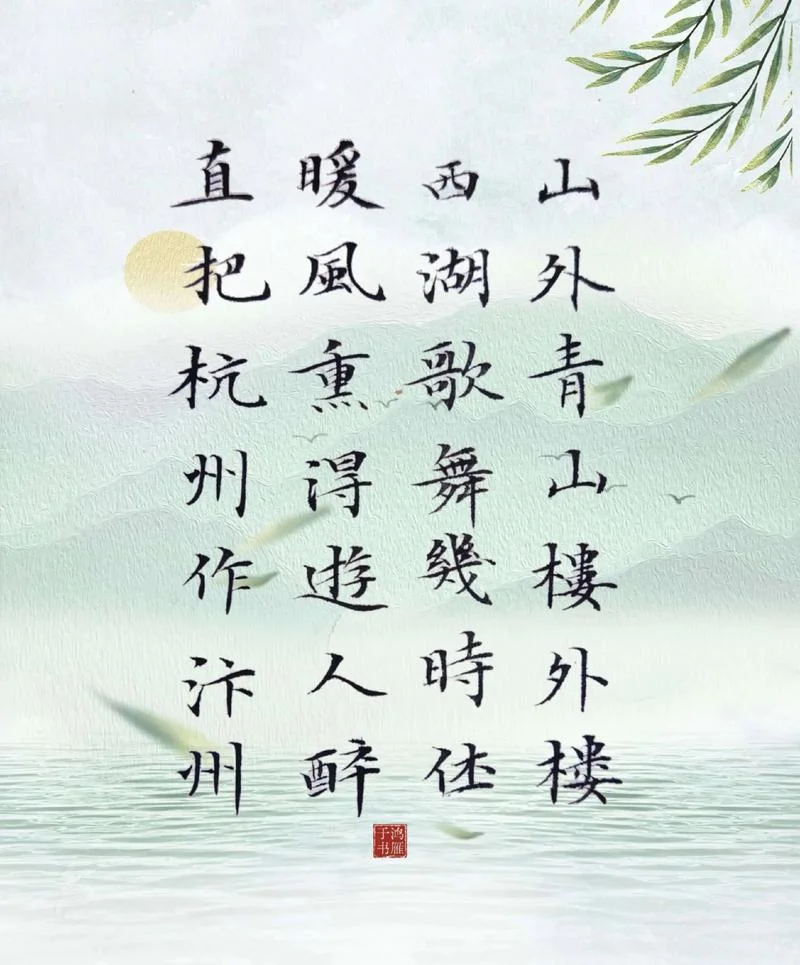 山外青山樓外樓
西湖歌舞幾時休
暖風熏得遊人醉
直把杭州作汴州
鸿雁
于书